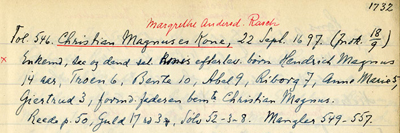 1732
Margrethe Andersd. Rasch
Fol. 546. Christian Magnuses Kone, 22 Sept. 1697. (
18/9)
x Enkem., og dend sal efterlev. børn Hendrich Magnus
14 aar, Troen 6, Bente 10, Abel 9, Riborg 7, Anna Maria 5,
Giertrud 3, form: faderen bemte Christian Magnus.
Reede p. 50, Guld 17 w 3q, Sølv 52-3-8. Mangler 549-557.